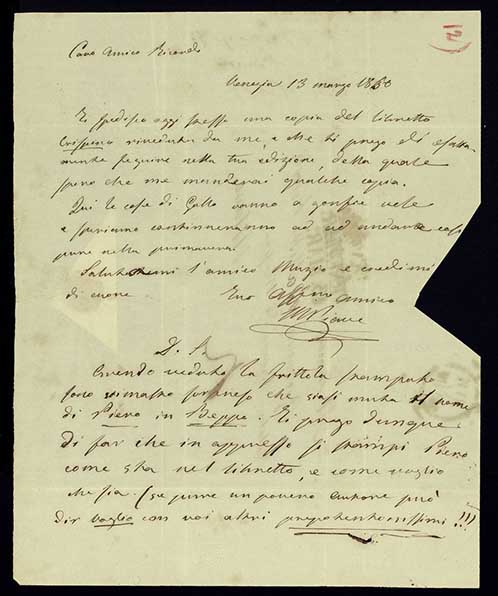 Caro Amico Ricordi
Venezia 13 marzo 1850
Ti spedisco oggi stesso una copia del libretto
Crispino riveduta da me, e che ti prego di esatta-
mente seguire nella tua edizione, della quale
spero che me manderai qualche copia.
Qui le cose di Gallo vanno a gonfie vele
e speriamo continueranno ad andare così
pure nella primavera.
Salutami l'amico Muzio e credimi
di cuore Tuo affmo amico
FMPiave
P. S.
Avendo veduto la frittola stampata
sono rimasto sorpreso che siasi mutato il nome
di Piero in Beppe. Ti prego dunque
di far che in appresso si stampi Piero
come sta nel libretto, e come voglio
che sia. (se pure un povero autore può
dir voglio con voi altri prepotentoni ssimi!!!